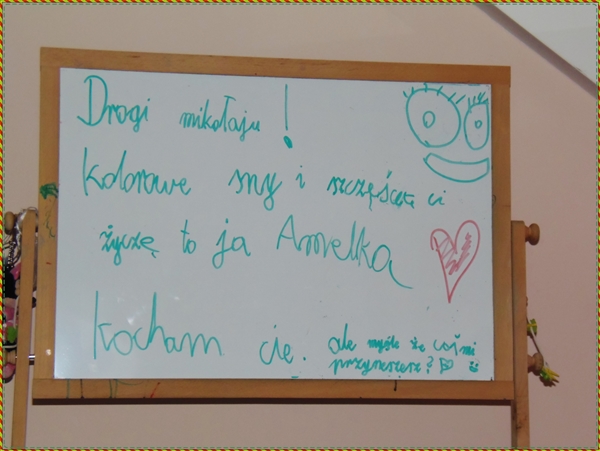 Drogi mikołaju!
Kolorowe sny i szczęścia ci
życzę to ja Amelka
Kocham cię.
ale myśle że coś mi
przyniesiesz?